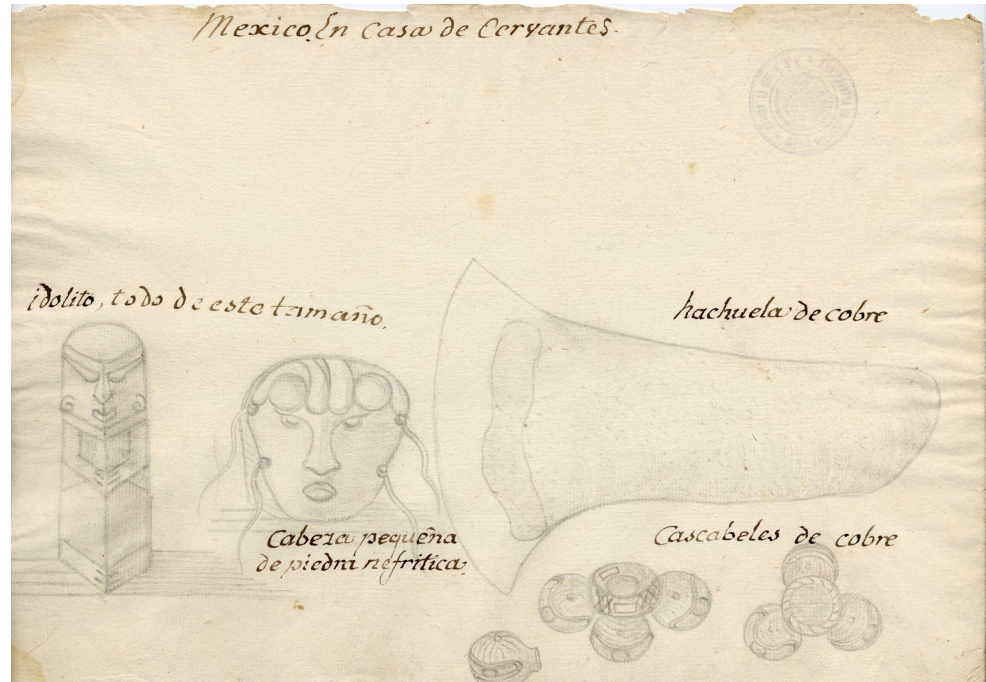 Mexico. En Casa de Cervantes.
idolito, todo de este tamaño.
hachuela de cobre
Cabeza pequeña
de piedra nefritica,
Cascabeles de cobre